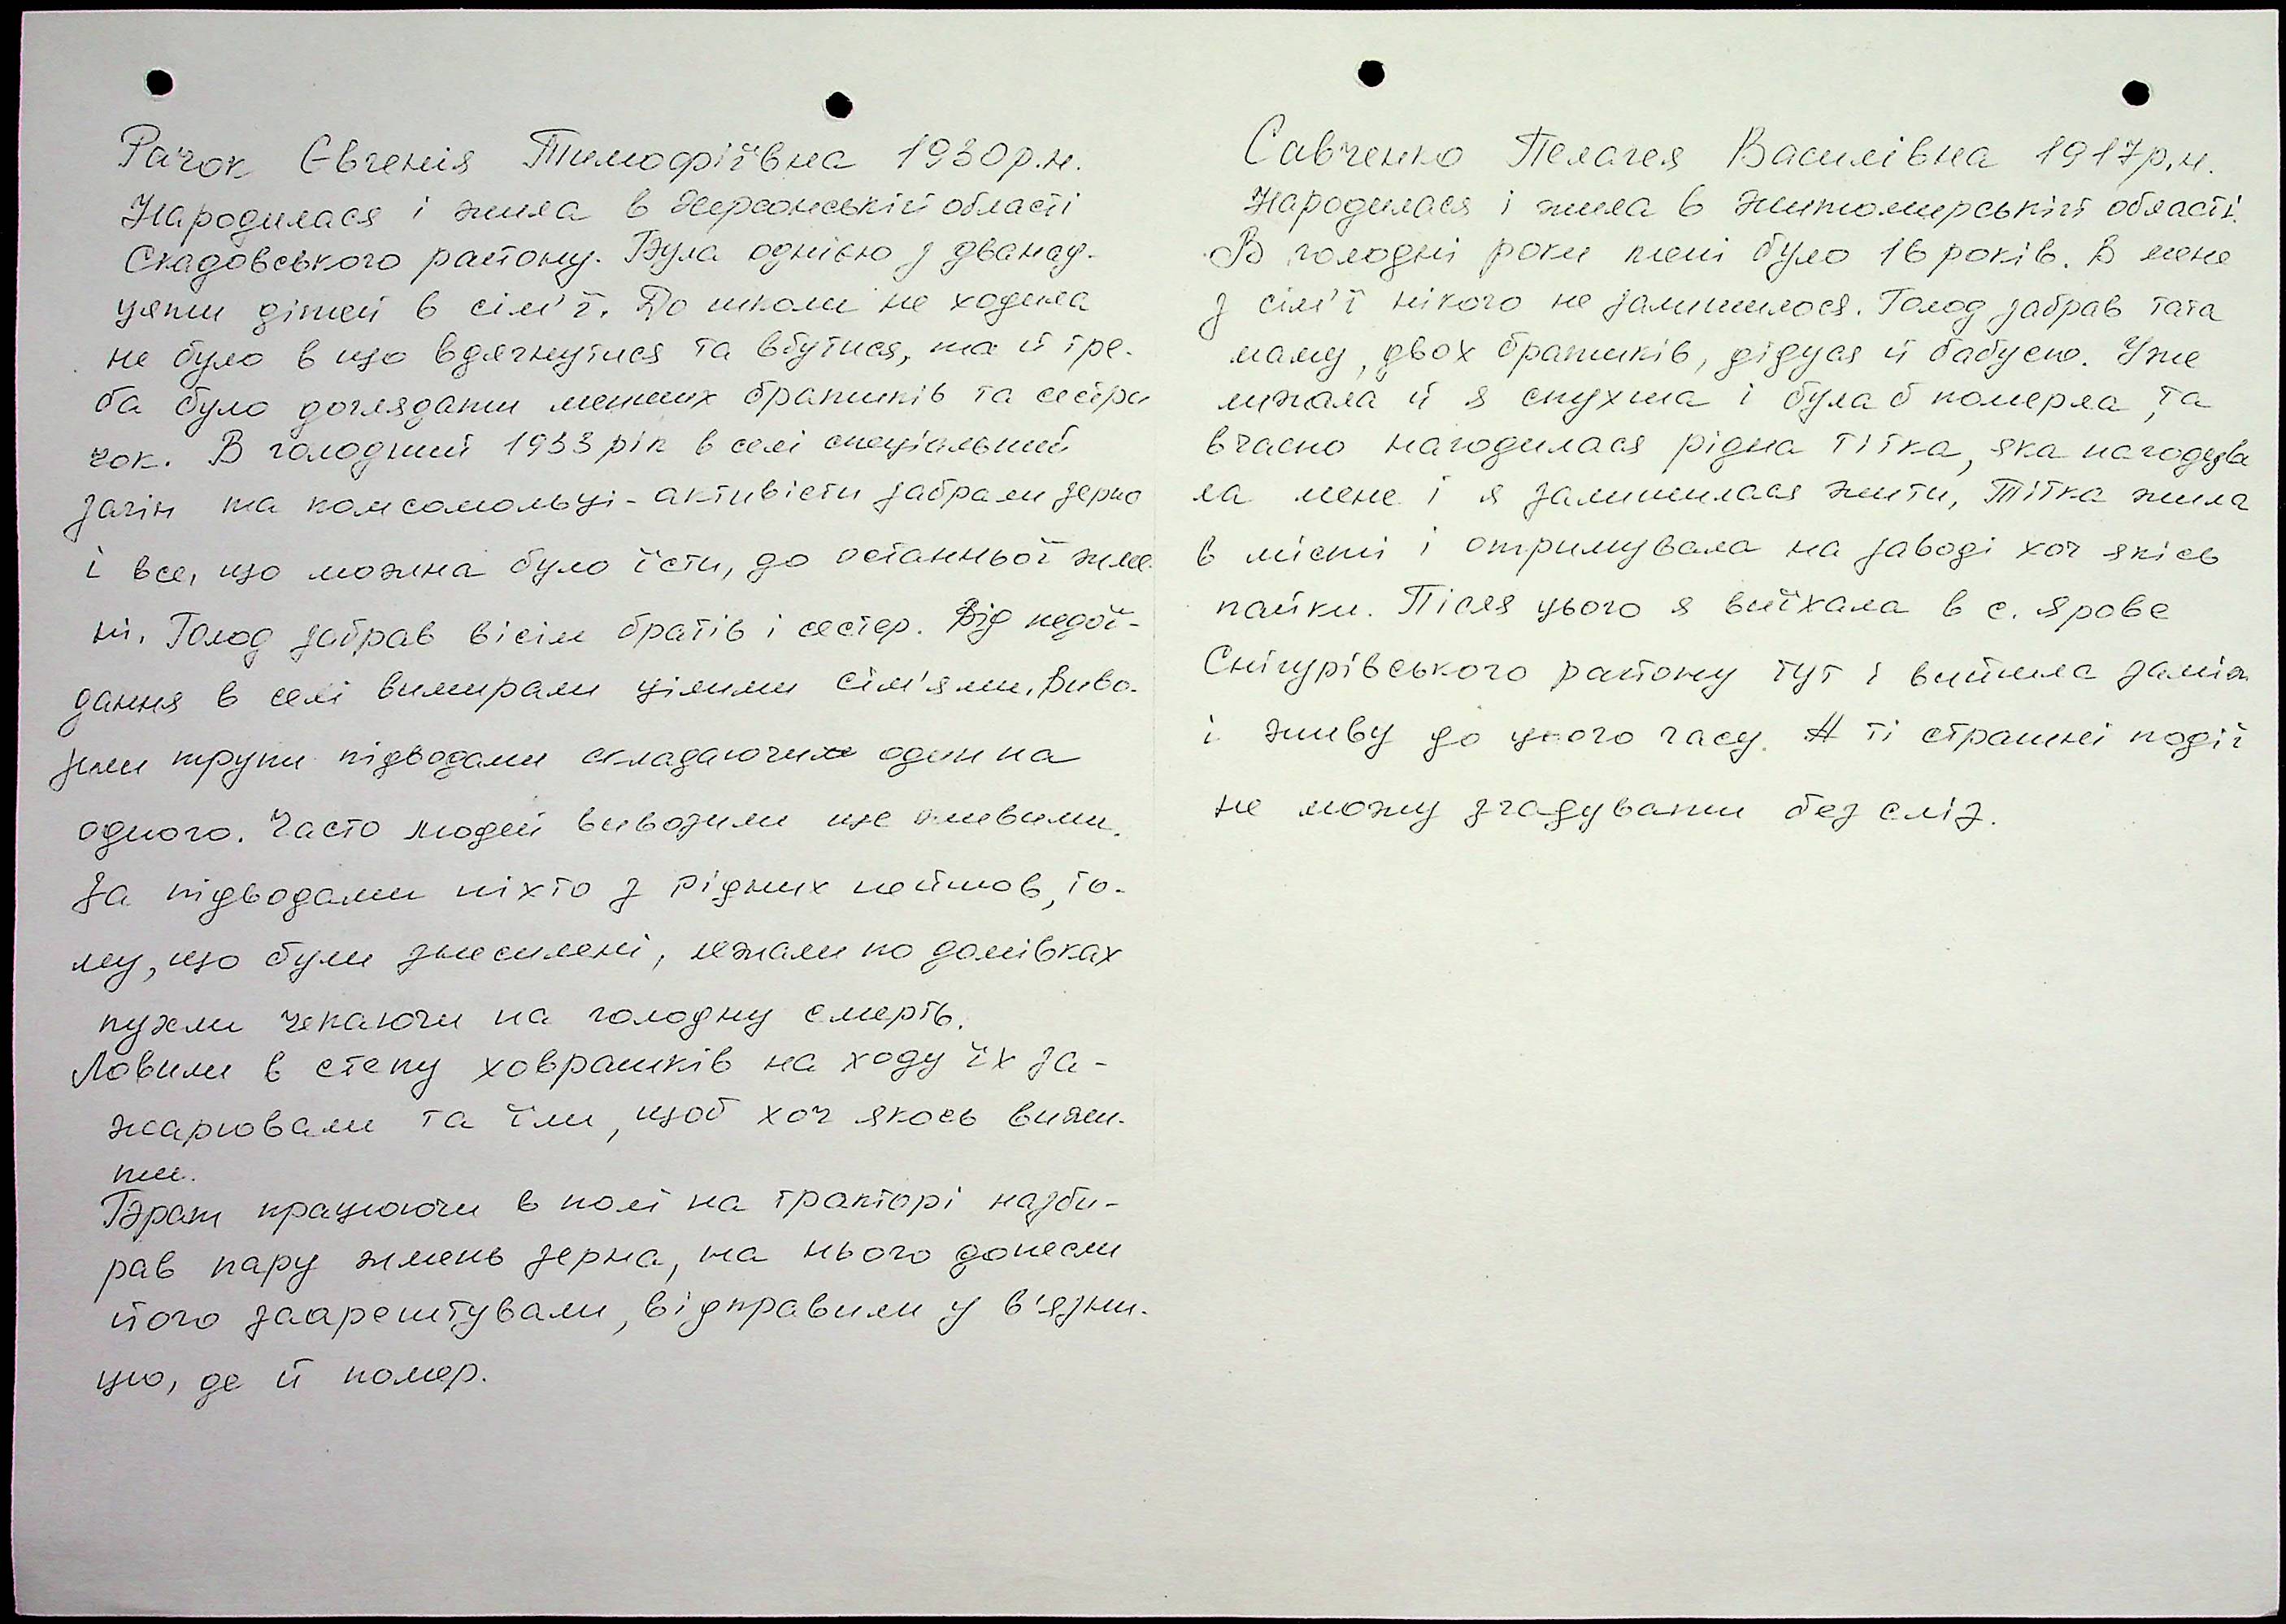 Рачок Євгенія Тимофіївна 1930р.н.
Народилася і жила в Херсонській області
Скадовського району. Була однією з дванад-
цяти дітей в сім'ї. До школи не ходила
не було в що вдягнутися та взутися, та й тре-
ба було доглядати менших братиків та сестри
чок. В голодний 1933 рік в селі спеціальний
загін та комсомольці-активісти забрали зерно
і все, що можна було їсти, до останньої жме
ні. Голод забрав вісім братів і сестер. Від недої-
дання в селі вимирали цілими сім'ями. Виво-
зили трупи підводами складаючи один на
одного. Часто людей вивозили ще живими.
За підводами ніхто з рідних не йшов, то-
му, що були знесилені, лежали по домівках
пухли чекаючи на голодну смерть.
Ловили в степу ховрашків на ходу їх за-
жарювали та їли, щоб хоч якось вижи-
ти.
Брат працюючи в полі на тракторі назби-
рав пару жмень зерна, на нього донесли
його заарештували, відправили у в'язни-
цю, де й помер.
Савченко Пелагея Василівна 1917р.н.
Народилася і жила в Житомирській області.
В голодні роки мені було 16 років. В мене
з сім'ї нікого не залишилося. Голод забрав тата
маму, двох братиків, дідуся й бабусю. Уже
лижала й я спухша і була б померла, та
вчасно нагодилася рідна тітка, яка нагодува
ла мене і я залишилася жити, Тітка жила
в місті і отримувала на заводі хоч якісь
пайки. Після цього я виїхала в с. Ярове
Снігурівського району тут і вийшла заміж
і живу до цього часу. А ті страшні події
не можу згадувати без сліз.